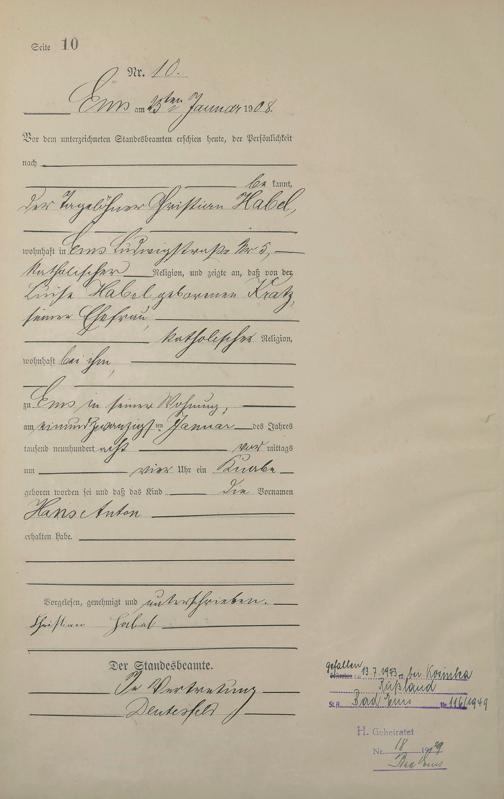 Seite 10
Nr. 10.
Ems am 23ten Januar 1908.
Vor dem unterzeichneten Standesbeamten erschien heute, der Persönlichkeit
nach
be kannt,
der Tagelöhner Christian Habel,
wohnhaft in Ems Ludwigstraße Nr 5,
katholischer Religion, und zeigte an, daß von der
Luise Habel geborenen Kratz,
seiner Ehefrau,
katholischer Religion,
wohnhaft bei ihm,
zu Ems in seiner Wohnung,
am einundzwanzigsten Januar des Jahres
tausend neunhundert acht vor mittags
um vier Uhr ein Knabe
geboren worden sei und daß das Kind die Vornamen
Hans Anton
erhalten habe.
Vorgelesen, genehmigt und unterschrieben.
Christian Habel
Der Standesbeamte.
In Vertretung
gefallen
13.7.1943 bei
Rußland
St.A. Bad Ems Nr. 116/1949
H. Geheiratet
Nr. 18 1929
Bad Ems